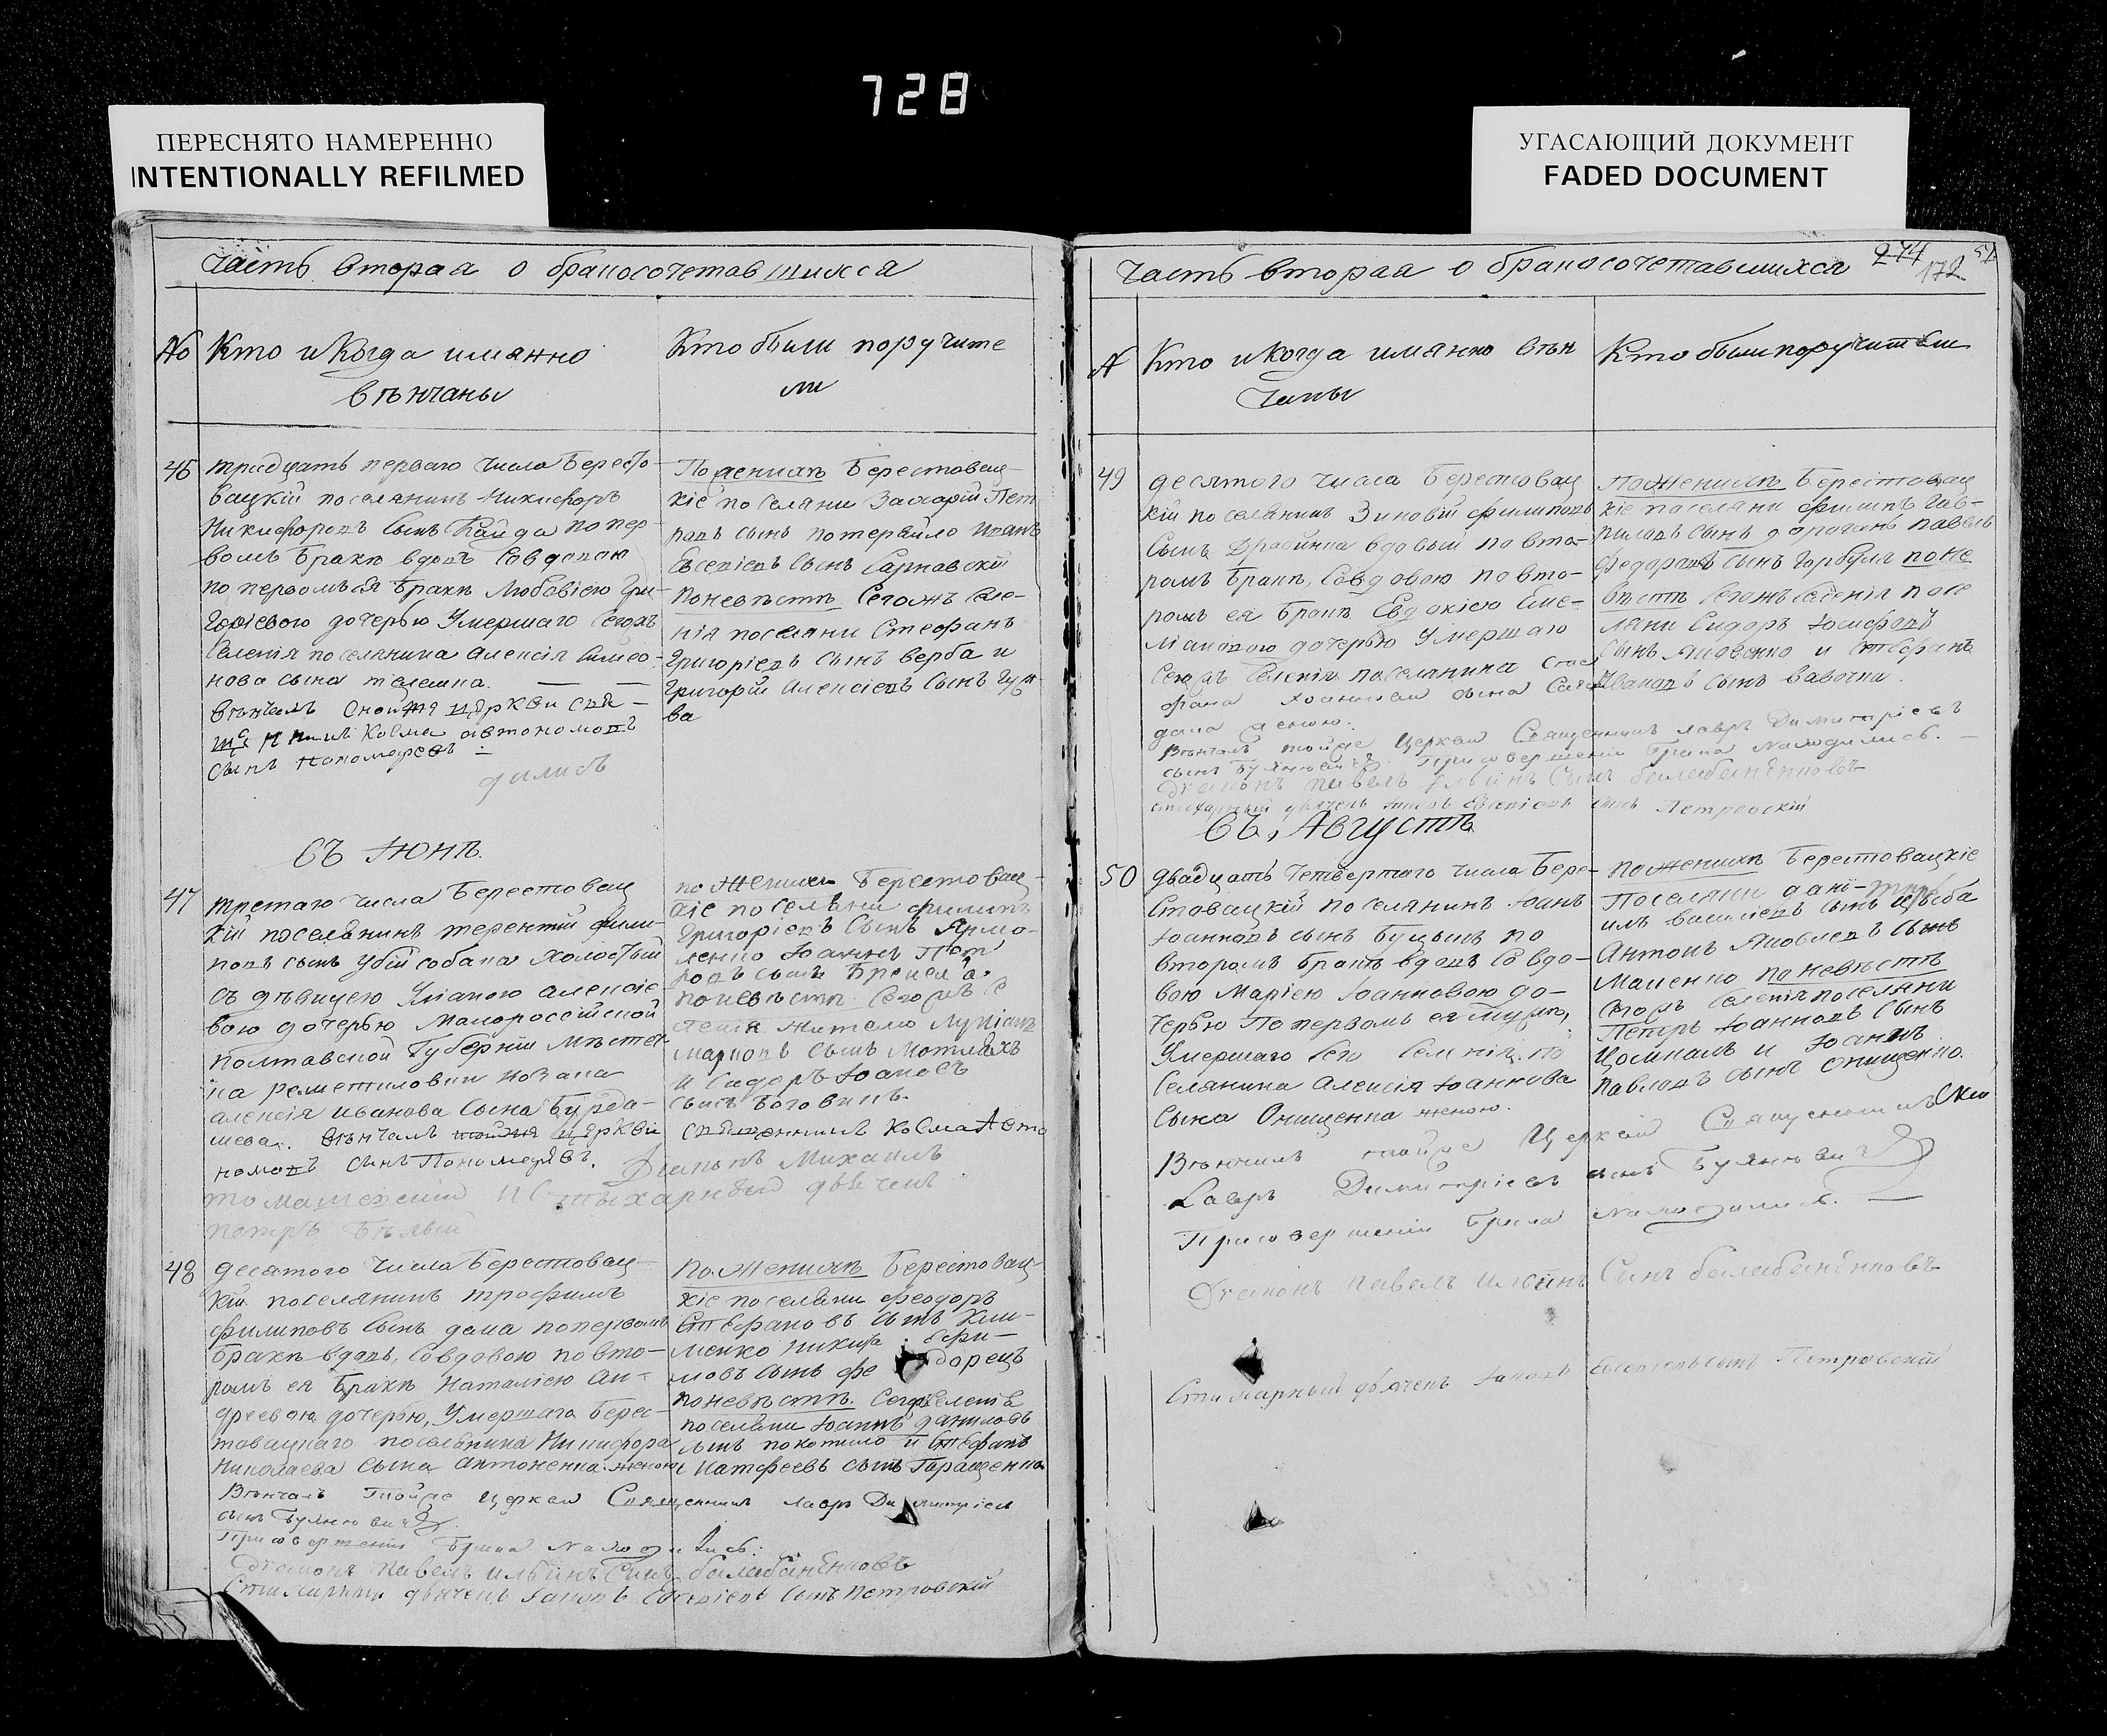 728
ПЕРЕСНЯТО НАМЕРЕННО
INTENTIONALLY REFILMED
УГАСАЮЩИЙ ДОКУМЕНТ
FADED DOCUMENT
Часть вторая о бракосочетавшихся
No Кто и Когда имянно
вѣнчаны
Кто были поручите
ли
46 тридцать перваго числа Бересто-
вацкій поселянинъ Никифоръ
Никифоровъ Сынъ Кайда по пер-
вомъ бракѣ вдовъ Совдовою
по первомъ ея бракѣ Любовiею Гри-
горiевою дочерью Умершаго Сегожъ
Селенія поселянина Алексія Симео-
нова сына
Вѣнчалъ церкви
Козма Автономовъ
Сынъ Пономаревъ
дились
По женихѣ Берестовац-
кіе поселяни Захарій Пет
ровъ сынъ потеряйло Иванъ
Евсевіевъ Сынъ Сарнавскій
По невѣстѣ Сегожъ Селе-
нія поселяни Стефанъ
Григоріевъ сынъ верба и
Григорій Алексіевъ Сынъ
ва
Въ Іюнѣ.
47 третаго числа Берестовац
кій поселянинъ терентій Фили-
повъ сынъ Убійсобака холостый
съ дѣвицею Уліаною Алексіе-
вою дочерью Малоросcійской
Полтавской Губерніи Мѣстеч
ка решетиловки козака
Алексія Иванова Сына
шева. Вѣнчалъ тойжя церкви
Священникъ Козма Авто
номовъ сынъ Пономаревъ. Діяконъ Михаилъ
И Стыхарный дьячекъ
петръ Бѣлый
по Женихѣ Берестовац-
кіе поселяни филипъ
Григоріевъ Сынъ Ярмо-
ленко Іоаннъ Пет
ровъ сынъ
по невѣстѣ Сегожъ Се
ленія Жители Лукіанъ
Марковъ сынъ
и Сидоръ Іоановъ
сынъ Боговинъ.
48 десятого числа Берестовац-
кій поселянинъ трофимъ
филиповъ Сынъ дама попервомъ
бракѣ вдовъ, Совдовою по вто-
ромъ ея бракѣ Наталіею Ан-
дреевою дочерью, Умершаго Берес-
товацкаго поселянина Никифора
Николаева Сына Антоненка женою
Вѣнчалъ тойже церкви Священникъ лавръ Димитріевъ
сынъ Буяновичъ
При совершеніи брака находились:
Діаконъ Павелъ Ильинъ Сынъ
Стихарный дьячекъ Іаковъ Евсевіевъ Сынъ Петровскій
По Женихѣ Берестовац-
кіе поселяни феодоръ
Стефановъ сынъ Кли-
менко никита ефи-
мовъ сынъ
По невѣстѣ. Сегожъ Селенія
поселяни Іоаннъ даниловъ
сынъ покотило и Стефанъ
Матфеевъ сынъ Таращенко
Часть вторая о бракосочетавшихся 274
172
N Кто и когда имянно вѣн
чаны
Кто были поручители
49 десятого числа Берестовац
кій поселянинъ Зиновій филиповъ
Сынъ вдовый по вто-
ромъ бракѣ, Совдовою по вто-
ромъ ея бракѣ Евдокіею Еме-
ліановою дочерью Умершаго
Сегожъ Селенія поселянина Стеѳ
фана Іоаннова сына
женою.
Вѣнчалъ тойже Церкви Священникъ лавръ Димитріевъ
сынъ Буяновичъ. При совершеніи брака находились.
Діаконъ Павелъ Ильинъ Сынъ
стихарный дьячекъ Іаковъ Евсевіевъ сынъ Петровскій
По Женихѣ Берестовац
кіе поселяни филипъ Гав-
риловъ сынъ дорогань павелъ
федоровъ Сынъ Горбуля по не
вѣстѣ Сегожъ Селенія посе
ляни Сидоръ Іосифовъ
Сынъ Яковенко и Стефанъ
Ивановъ сынъ бабочка.
Въ, Августѣ
50 двадцать четвертаго числа Бере-
стовацкій поселянинъ Іоанъ
Іоанновъ сынъ Буцынъ по
второмъ бракѣ вдовъ Совдо-
вою Маріею Іоанновою до-
черью По первомъ ея мужѣ,
Умершаго Сего Селенія по
Селянина Алексія Іоаннова
Сына Онищенка женою.
Вѣнчалъ тойже Церкви Священникъ
Лавръ Димитріевъ сынъ Буяновичъ
При совершеніи брака находились.
Діаконъ Павелъ Ильинъ Сынъ
Стихарный дьячекъ Іаковъ Евсевіевъ сынъ Петровскій
по женихѣ Берестовацкіе
Поселяни дані-
илъ василіевъ сынъ
Антонъ Яковлевъ Сынъ
Маценко по невѣстѣ
Сегожъ Селенія поселяни
Петръ Іоанновъ Сынъ
и Іоаннъ
Павловъ сынъ Онищенко.